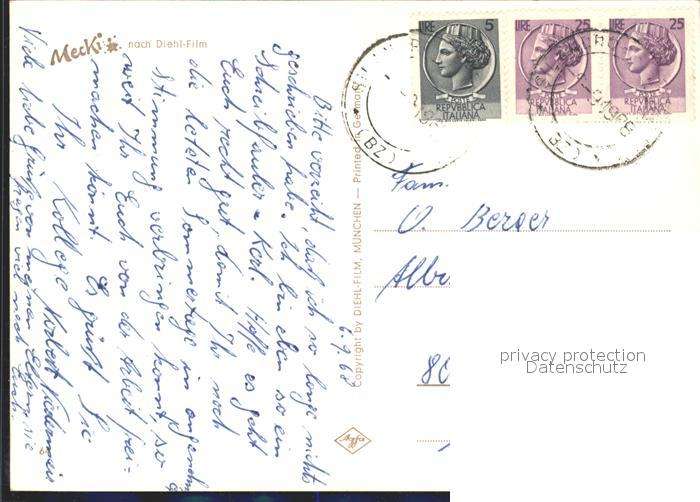 Mecki nach Diehl-Film
6.9.68
Bitte verzeiht, daß ich so lange nichts
geschrieben habe. Ich bin eben so ein
Schreibfauler Kerl. Hoffe es geht
Euch recht gut, damit Ihr noch
die letzten Sommertage in angenehmer
Stimmung verbringen könnt, so
weit Ihr Euch von der Arbeit frei-
machen könnt. Es grüßt Sie
Ihr Kollege Norbert
Viele liebe Grüße von meinen Eltern, sie
fragen viel nach Euch.
Copyright by DIEHL-FILM, MÜNCHEN — Printed in Germany
Agfa
LIRE 5
REPVBBLICA
ITALIANA
LIRE 25
REPVBBLICA
ITALIANA
25
REPVBBLICA
ITALIANA
(BZ)
Fam.
O. Berger
Albr
80
privacy protection
Datenschutz